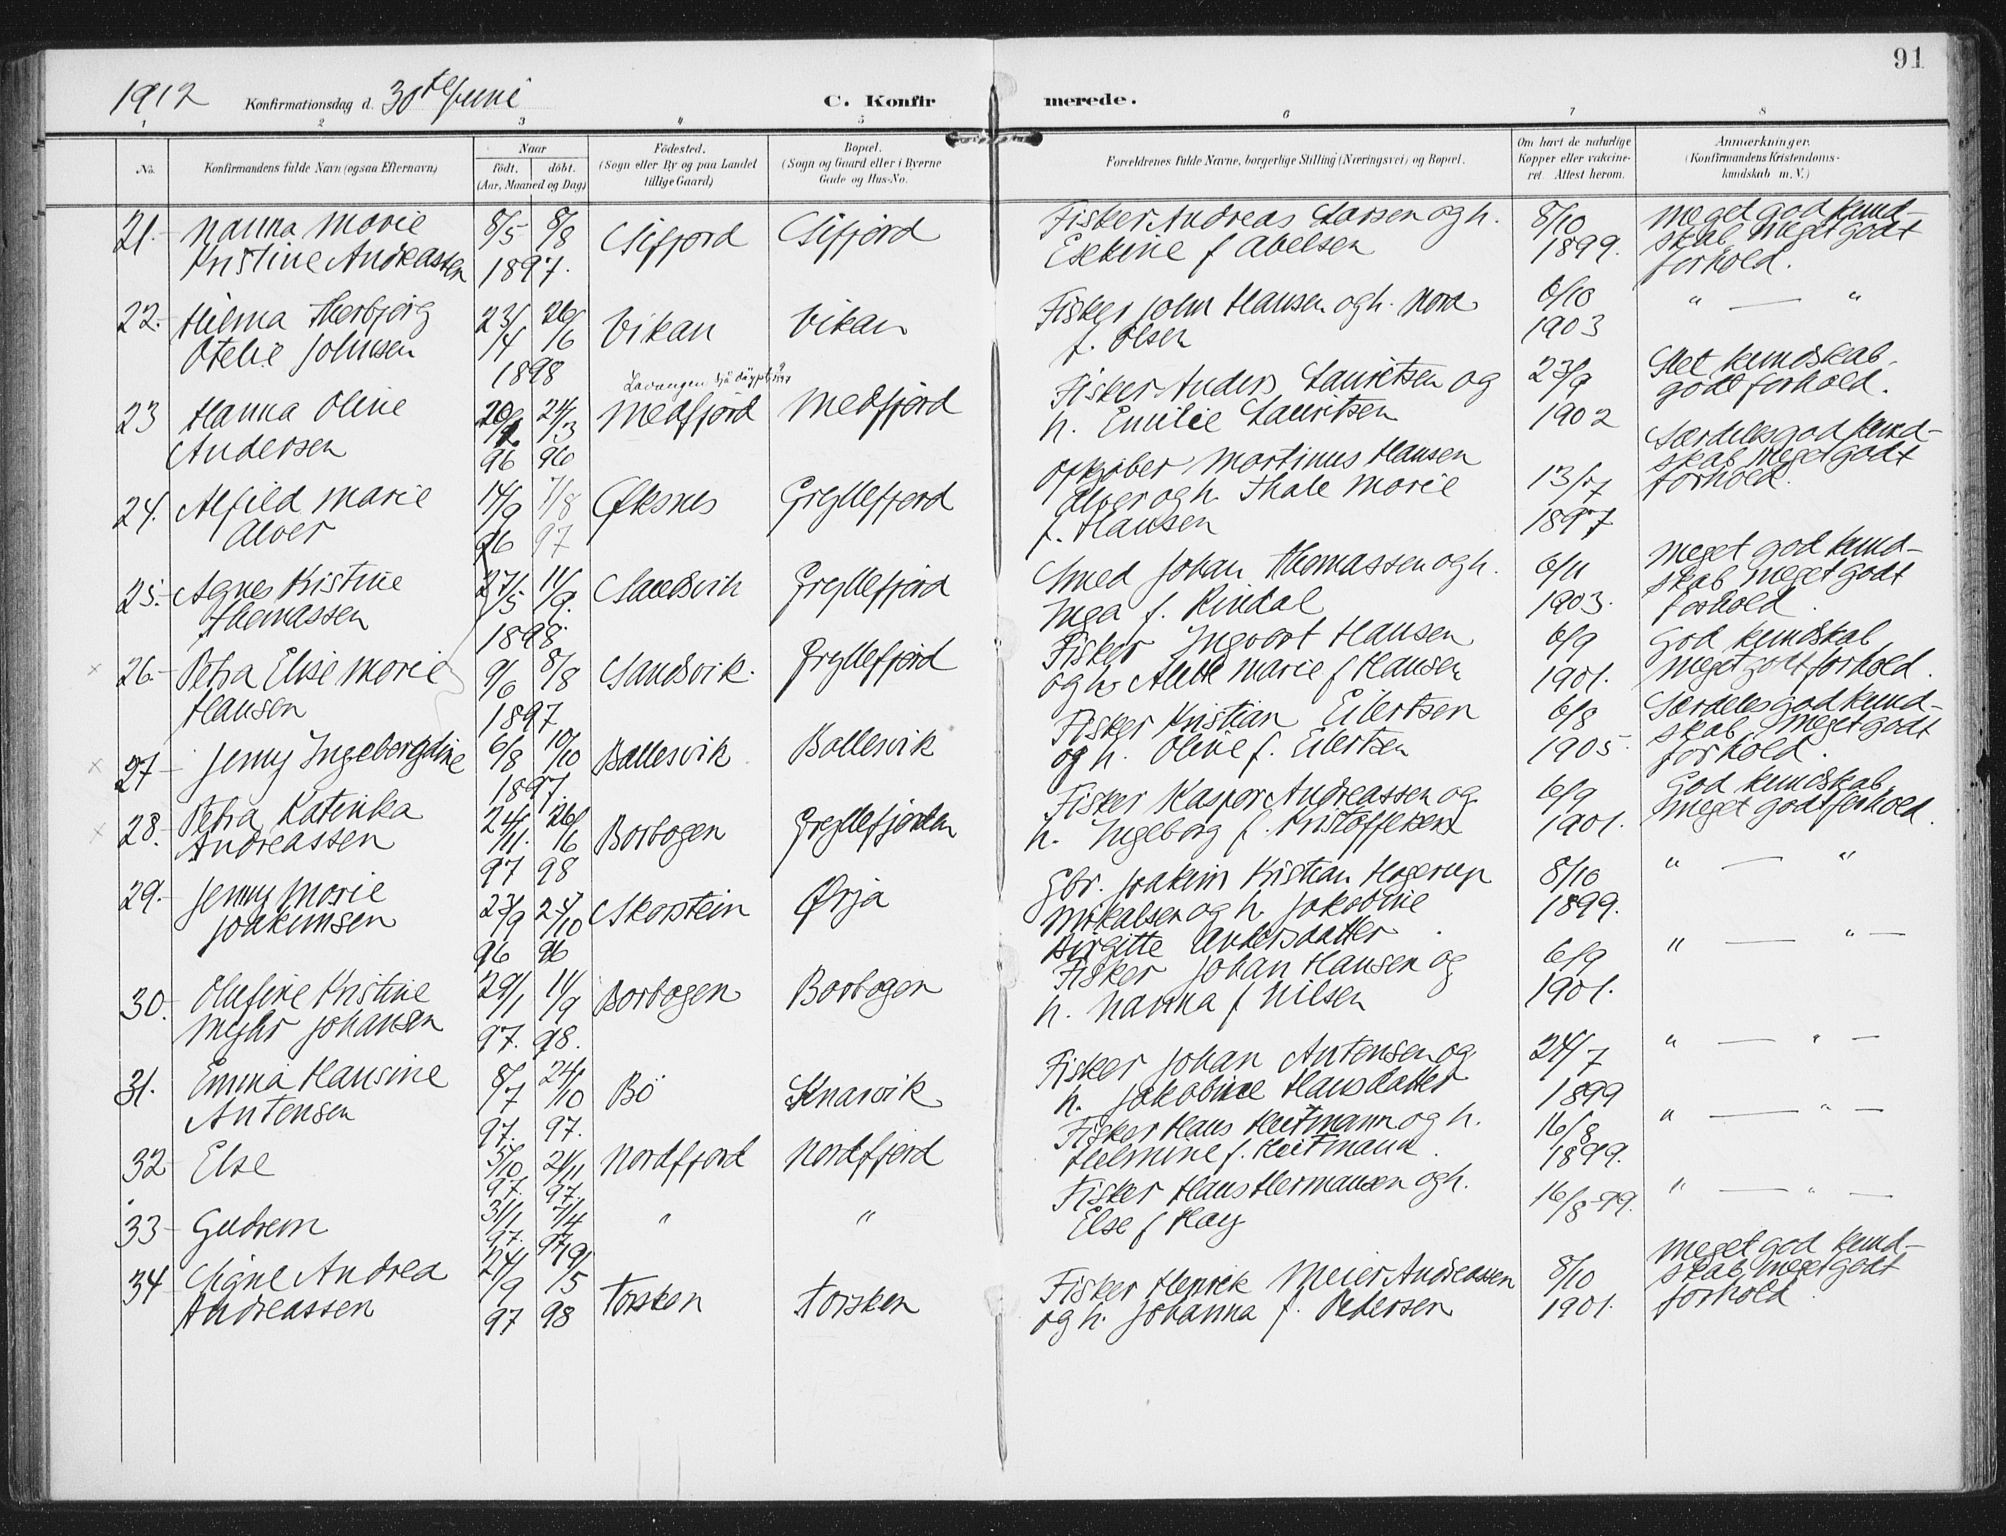 91
1912 Konfirmationsdag d. 30te Juni C. Konfirmerede.
1 2 3 4 5 6 7 8
No. Konfirmandens fulde Navn (ogsaa Efternavn) Naar Födt. döbt. (Aar, Maaned og Dag) Födested. (Sogn eller By og paa Landet tillige Gaard) Bopæl. (Sogn og Gaard eller i Byerne Gade og Hus-No. Forældrenes fulde Navne, borgerlige Stilling (Næringsvei) og Bopæl. Om havt de naturlige Kopper eller vakcineret. Attest herom. Anmærkninger. (Konfirmandens Kristendomskundskab m. V.)
21. Nanna Marie 8/5 8/8 Sifjord Sifjord Fisker Andreas Larsen og h. 8/10 Meget god kund-
Kristine Andreassen 1897. Esekine f Abelsen 1899. skab meget godt
forhold.
22. Hilma Herbjörg 23/4 26/6 Vikan Vikan Fisker John Hansen og h. Nora 6/10 " — "
Otelie Johnsen 1898 f. Olsen 1903
23 Hanna Oline 20/2 24/3 Medfjord Medfjord Fisker Anders Lauritsen og 23/9 Slet kundskab,
Andersen 96 96 h. Emilie Lauritsen 1902 godt forhold.
24. Alfild Marie 14/9 7/8 Øksnes Gryllefjord Opkjøber Martinus Hansen 13/7 Særdeles god kund-
Alver 96 97 Alver og h. Thale Marie 1897 skab meget godt
f. Hansen forhold.
25. Agnes Kristine 27/5 11/9. Sandvik Gryllefjord Smed Johan Thomassen og h. 6/11 Meget god kund-
Thomassen 1898. Inga f. Rindal 1903. skab meget godt
forhold.
26. Petra Elise Marie 9/6 8/8 Sandvik. Gryllefjord Fisker Ingvart Hansen 6/9 God kundskab
Hansen 1897 og h Marie f Hansen 1901. meget godt forhold.
27 Jenny Ingeborgdine 6/8 10/10 Ballesvik Ballesvik Fisker Kristian Eilertsen 6/8 Særdeles god kund-
1897. og h. Oline f. Eilertsen 1905. skab meget godt
forhold.
28. Petra Katinka 24/11. 26/6 Borbogen Gryllefjorden Fisker Kaspar Andreassen og 6/9 God kundskab,
Andreassen 97 98 h. Ingeborg f. Kristoffersen 1901. meget godt forhold.
29. Jenny Marie 23/9 25/10 Skorstein Ørja Gbr. Joakim Kristian Hagerup 8/10 " — "
Joakimsen 96 96 Mikalsen og h. Jakobine 1899.
Birgitte Andersdatter
30. Olufine Kristine 29/1 11/9 Borbogen Borbogen Fisker Johan Hansen og 6/9 " — " —
Myhr Johansen 97. 98. h. Nanna f Nilsen 1901.
31. Emma Hansine 8/7 24/10 Bö Knarvik Fisker Johan Antonsen og 24/7 " — " —
Antonsen 97. 97. h. Jakobine Hansdatter 1899
32 Else 5/10 21/11 Nordfjord Nordfjord Fisker Hans Heitmann og h. 16/8 " — " —
97. 97. Helmine f. Heitmann 1899.
33 Gudrun 31/1 7/4 " " Fisker Hans Hermansen og h. 16/8 99. " — " —
97. 97 Else f Hay
34 Signe Andrea 24/9 19/5 Torsken Torsken Fisker Henrik Meier Andreassen 8/10 Meget god kund-
Andreassen 97 98 og h. Johanna f. Pedersen 1901. skab meget godt
forhold.